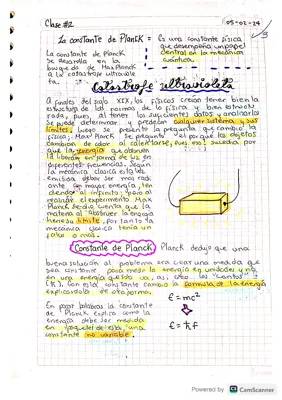 Clase #2
05-02-24
La constante de Planck = Es una constante física
que desempeña un papel
central en la mecánica
cuántica
La constante de Planck
se desarrolla en la
busqueda de Max Planck
a la catastrofe ultraviole
ta.
Catastrofe ultravioleta
A finales del siglo XIX, los físicos creian tener bien la
estructura de las normas de la física y bien estructu
rada, pues al tener los siguientes datos y analizarlos
se puede determinar y predecir cualquier sistema y sus
límites, luego se presentó la pregunta que cambio la
física, Max Planck se preguntó el por qué los objetos
cambian de color al calentarse, pues, eso sucedía por
que la energía que obtienen
la liberan en forma de luz en
diferentes frecuencias. Según
la mecánica clasica esta luz
emitida, deber ser más radi
ante con mayor energía, ten
diendo al infinito; pero al
realizar el experimento Max
Planck se dio cuenta que la
materia al absorver la energía
tiene su límite, por tanto la
mecánica clasica tenia un
fallo o más.
Constante de Planck Planck dedujo que una
buena solución al problema era crear una medida que
sea constante para medir la energía en unidades y no
en una energía
(ℏ), con esta constante cambio la formula de la energía
explicandola de otra forma.
E = mc²
En pocas palabras la constante
de Planck explica como la
energía debe ser medida
en paquetes de esta, una
constante no variable.
E = ℏ.f
Powered by CS CamScanner